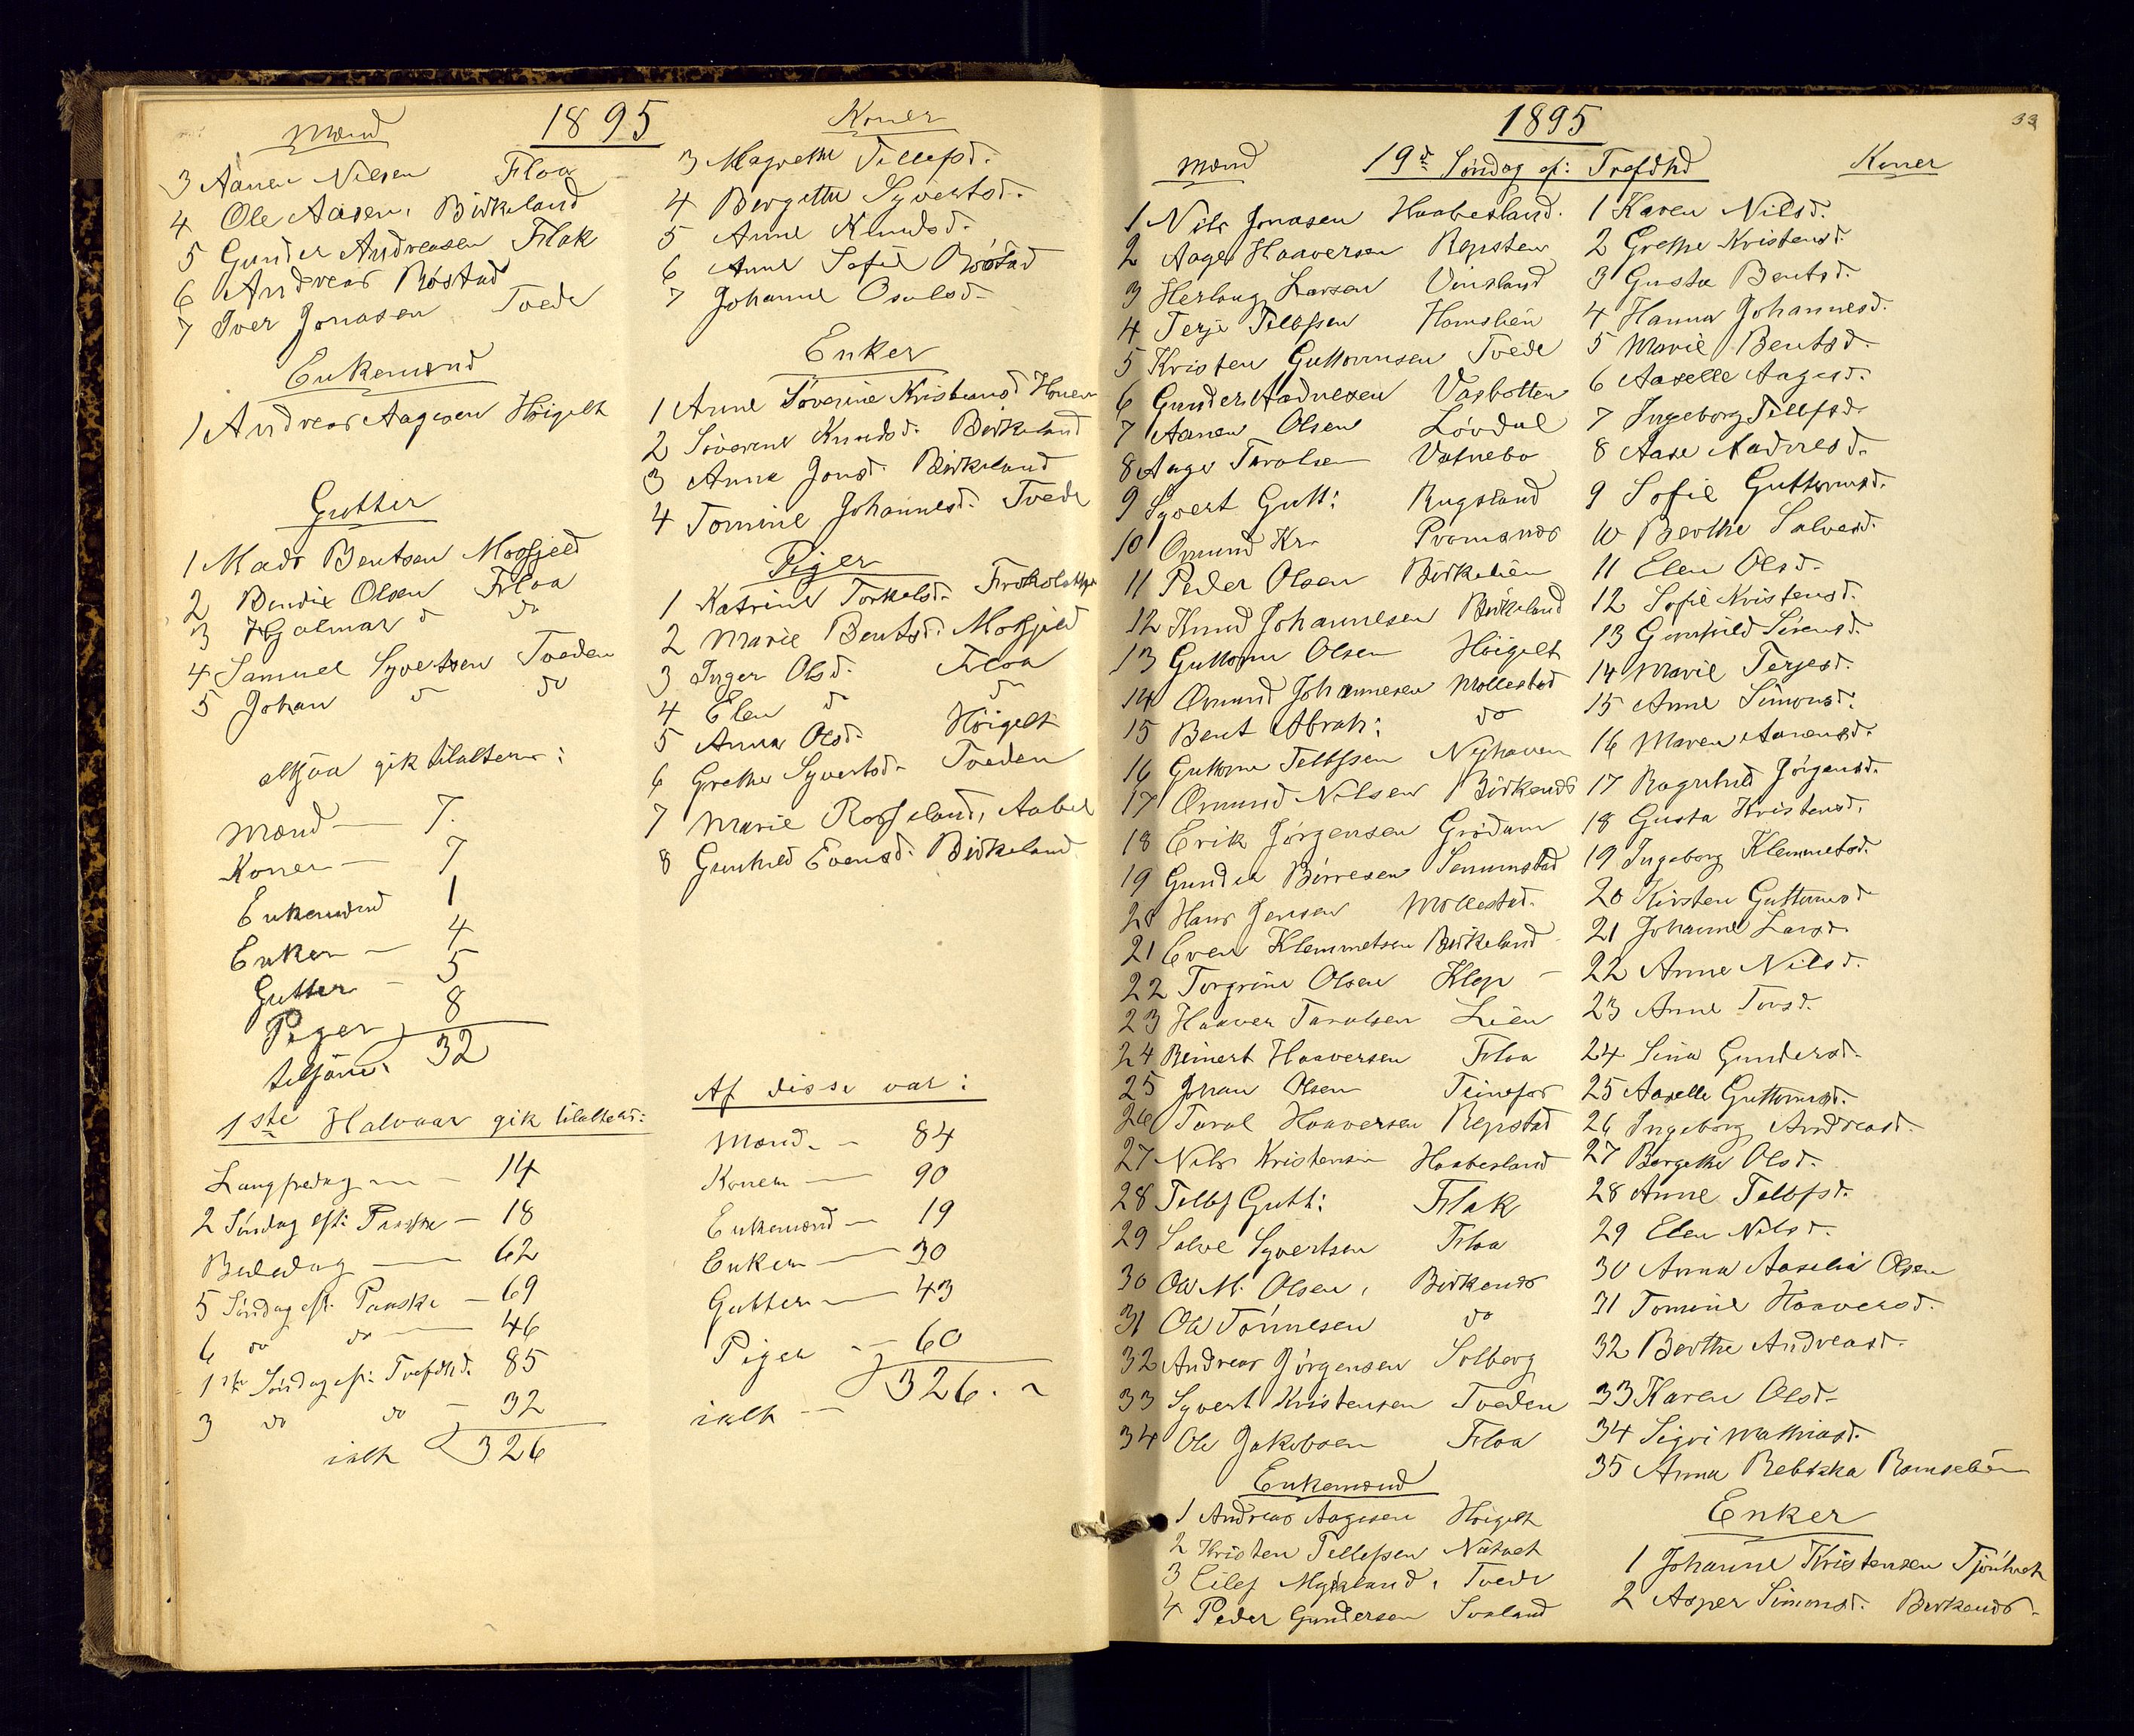 1895
Mænd
3 Aanen Nilsen Floa
4 Ole Aasen, Birkeland
5 Gunder Andreasen Flak
6 Andreas Røstad
7 Iver Jonasen Tvede
Enkemænd
1 Andreas Aagesen Høigilt
Gutter
1 Mads Bentsen Mosfjeld
2 Bendix Olsen Floa
3 Hjalmar do do
4 Samuel Syvertsen Tveden
5 Johan do do
altsaa gik tilalters:
Mænd — 7.
Koner — 7
Enkemænd 1
Enker — 4
Gutter — 5
Piger 8
tilsam. 32
1ste Halvaar gik tilalters:
Langfredag — 14
2 Søndag eft: Paaske — 18
Bededag — 62
5 Søndag eft. Paaske — 69
6 do do — 46
1ste Søndag eft: Trefdhd. 85
3 do do — 32
ialt 326
Koner
3 Magrethe Tellefsd.
4 Bergitte Syvertsd.
5 Anne Knudsd.
6 Anne Sofie Røstad
7 Johanne Osulsd.
Enker
1 Anne Severine Kristiansd
2 Severine Knudsd. Birkeland
3 Anne Jonsd. Birkeland
4 Tomine Johannesd. Tvede
Piger
1 Katrine Torkelsd.
2 Marie Bentsd. Mosfjeld
3 Inger Olsd. Floa
4 Elen do do
5 Anna Olsd. Høigilt
6 Grethe Syvertsd. Tveden
7 Marie Rosseland, Aabel
8 Gunhild Evensd. Birkeland
Af disse var:
Mænd — 84
Koner — 90
Enkemænd — 19
Enker — 30
Gutter — 43
Piger — 60
ialt — 326.
33
1895
19de Søndag ef: Trefdhd
Mænd
1 Nils Jonasen Haabesland.
2 Aage Haaversen Repsten
3 Herlaug Larsen Vinsland
4 Terje Tellefsen Homslien
5 Kristen Guttormsen Tvede
6 Gunder Aadnesen Vasbotten
7 Aanen Olsen Løvdal
8 Aage Taralsen Vatnebo
9 Syvert Gutt: Rugsland
10 Omund Kr.
11 Peder Olsen Birkelien
12 Knud Johannesen Birkeland
13 Guttorm Olsen Høigilt
14 Omund Johannesen Mollestad
15 Bent Abrah: do
16 Guttorm Tellefsen Nyhaven
17 Omund Nilsen Birkenes
18 Erik Jørgensen Grødum
19 Gunder Børresen Senumstad
20 Hans Jensen Mollestad.
21 Even Klemmetsen Birkeland
22 Torgrim Olsen Klep —
23 Haaver Taralsen Lien
24 Reinert Haaversen Floa
25 Johan Olsen Teinefos
26 Taral Haaversen Repstad
27 Nils Kristensen Haabesland
28 Tellef Gutt: Flak
29 Salve Syvertsen Floa
30 Ole M. Olsen, Birkenes
31 Ole Tønnesen do
32 Andreas Jørgensen Solberg
33 Syvert Kristensen Tveden
34 Ole Jakobsen Floa
Enkemænd
1 Andreas Aagesen Høigilt
2 Kristen Tellefsen
3 Eilef Mykland, Tvede
4 Peder Gundersen Svaland
Koner
1 Karen Nilsd.
2 Grethe Kristensd.
3 Gusta Bentsd.
4 Hanna Johannesd.
5 Marie Bentsd.
6 Aaselle Aagesd.
7 Ingeborg Tellefsd.
8 Aase Aadnesd.
9 Sofie Guttormsd.
10 Berthe Salvesd.
11 Elen Olsd.
12 Sofie Kristensd.
13 Gunhild Sørensd.
14 Marie Terjesd.
15 Anne Simonsd.
16 Maren Aanensd.
17 Ragnhild Jørgensd.
18 Gusta Kristensd.
19 Ingeborg Klemmetsd.
20 Kirsten Guttormsd
21 Johanne Larsd.
22 Anne Nilsd.
23 Anne Torsd.
24 Sina Gundersd.
25 Aaselle Guttormsd.
26 Ingeborg Andreasd.
27 Bergethe Olsd.
28 Anne Tellefsd.
29 Elen Nilsd.
30 Anna Aaselia Olsen
31 Tomine Haaversd.
32 Berthe Andreasd.
33 Karen Olsd.
34 Sigri Mathiasd.
35 Anna Rebekka Ramselien
Enker
1 Johanne Kristensen
2 Asper Simonsd. Birkenes.